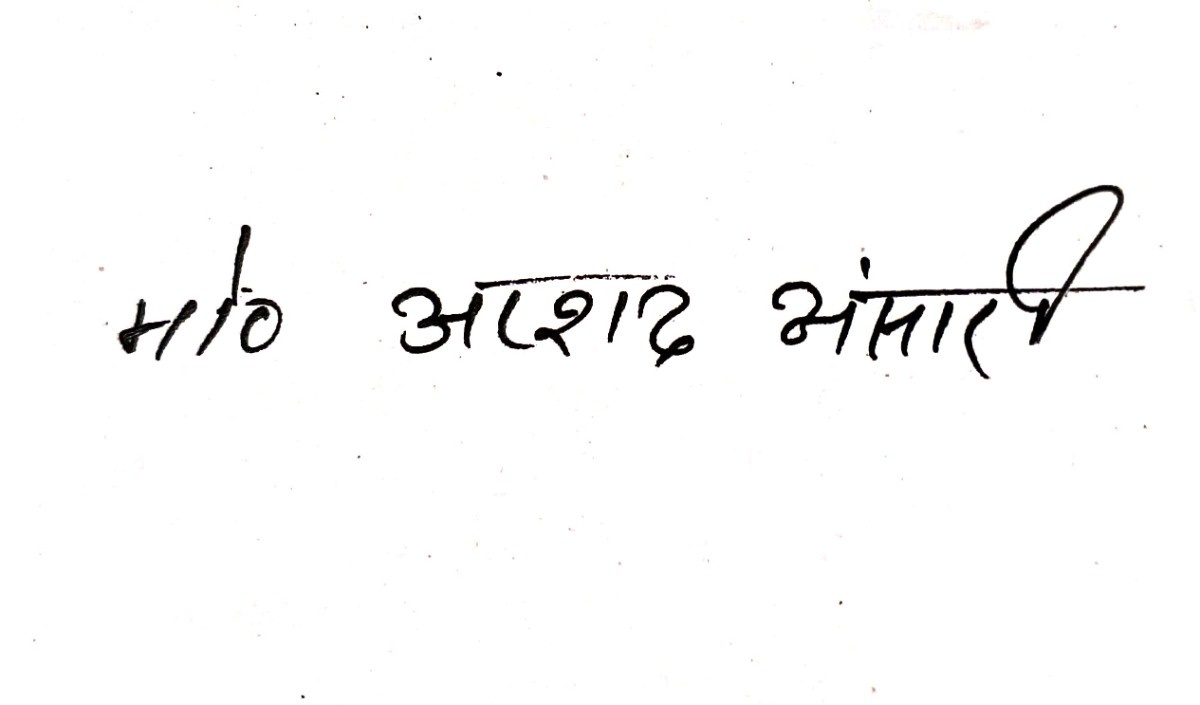 मो० अरशद अंसारी